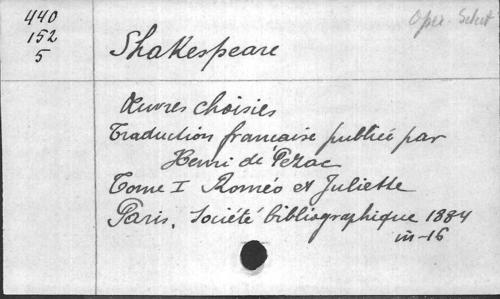 440
152
5
Shakespeare
Oper. Selut
Œuvres choisies
Traduction française publiée par
Henri de Pezac
Tome I Roméo et Juliette
Paris. Société bibliographique 1884
in-16